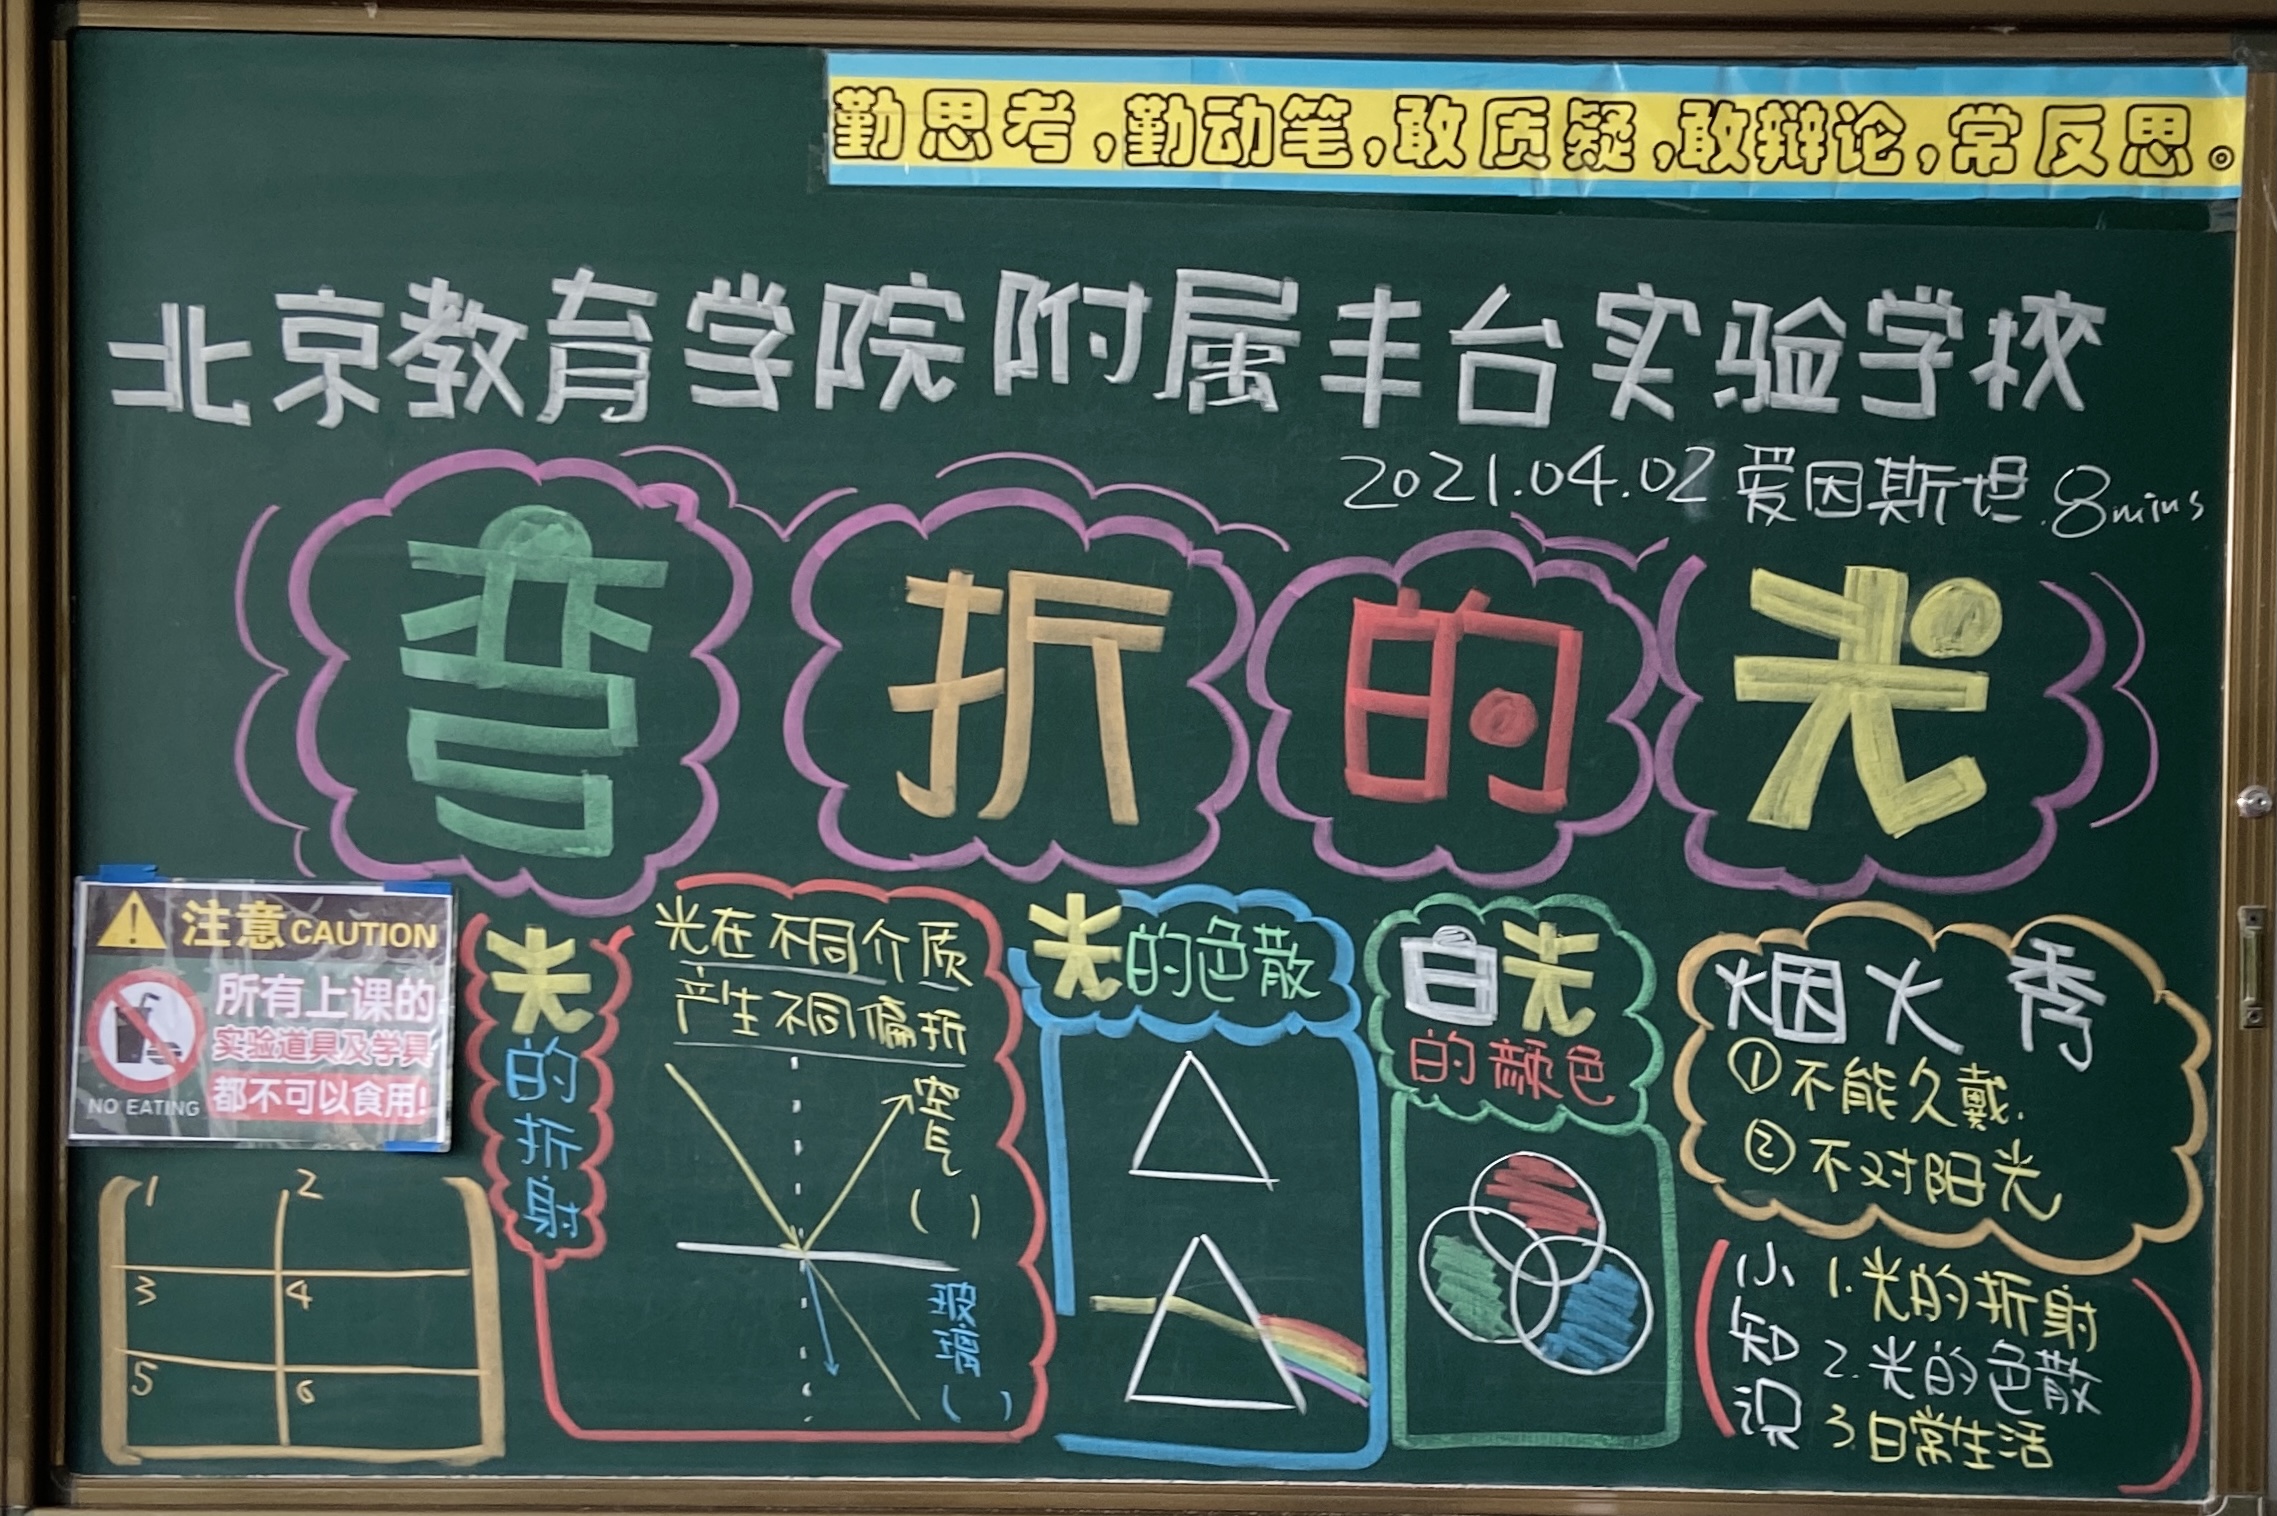 勤思考,勤动笔,敢质疑,敢辩论,常反思。
北京教育学院附属丰台实验学校
2021.04.02 爱因斯坦 8mins
弯折的光
注意 CAUTION
所有上课的
实验道具及学具
都不可以食用!
NO EATING
1 2
3 4
5 6
光的折射
光在不同介质
产生不同偏折
空气
( )
玻璃
( )
光的色散
白光
的颜色
烟火秀
①不能久戴.
②不对阳光
小知识
1.光的折射
2.光的色散
3.日常生活